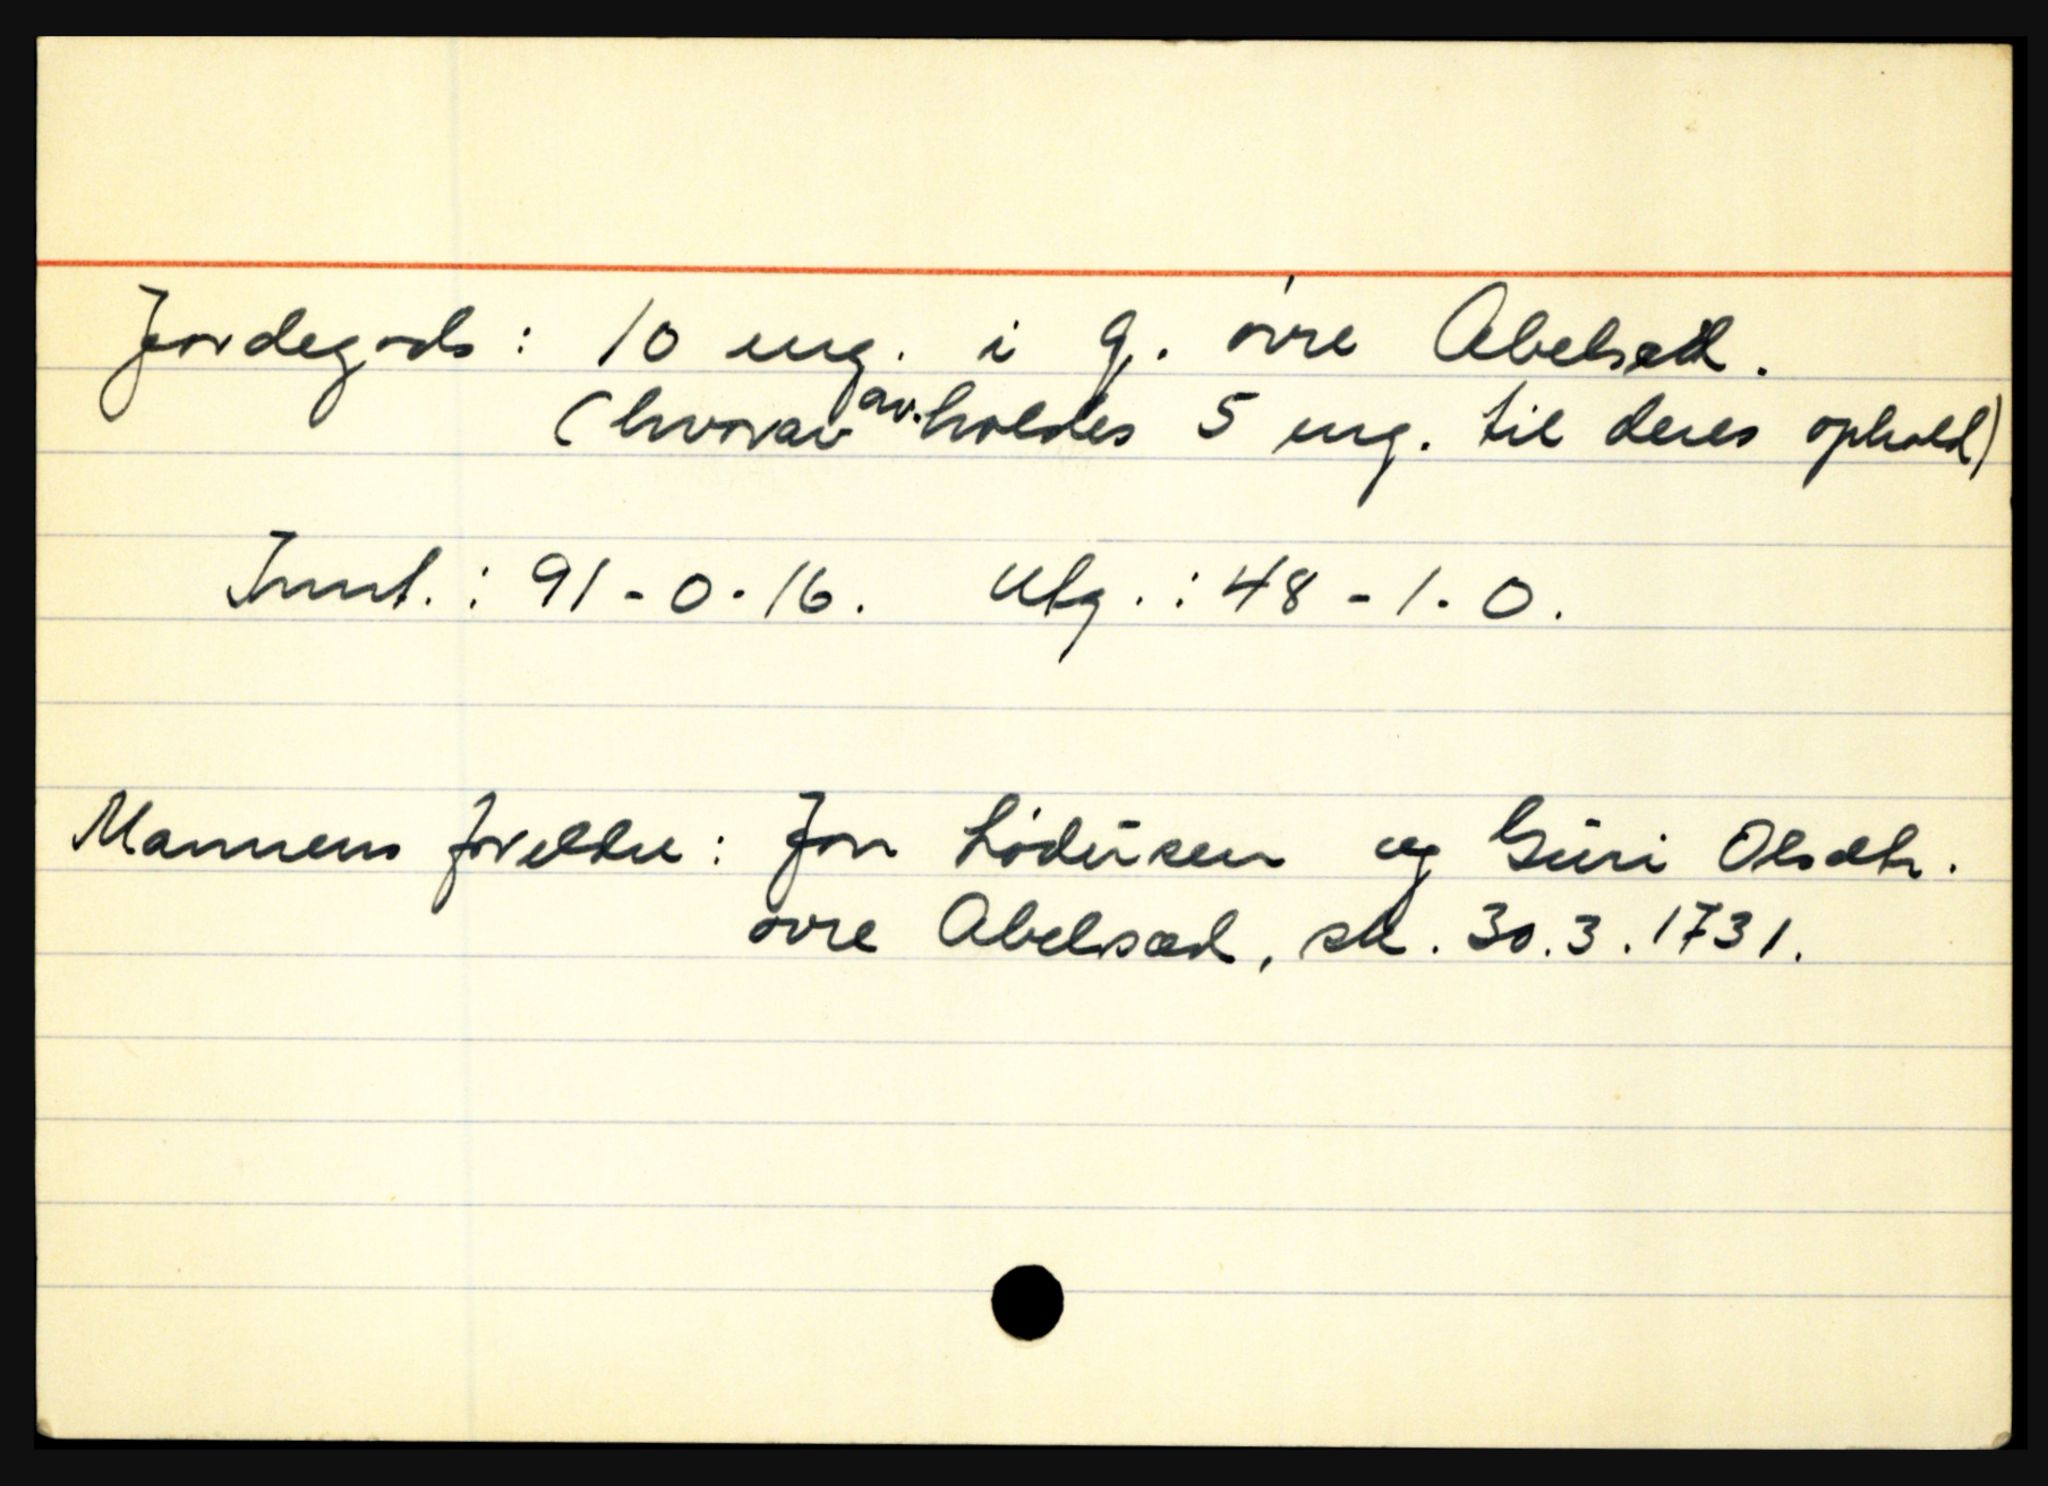 Jordegods: 10 eng. i g. øvre Abelsæd.
(hvorav av.holdes 5 eng. til deres ophold)
Innt.: 91-0-16. Utg.: 48-1-0.
Mannens foreldre: Jon Lødersen og Guri Olsdtr.
øvre Abelsæd, sk. 30.3.1731.